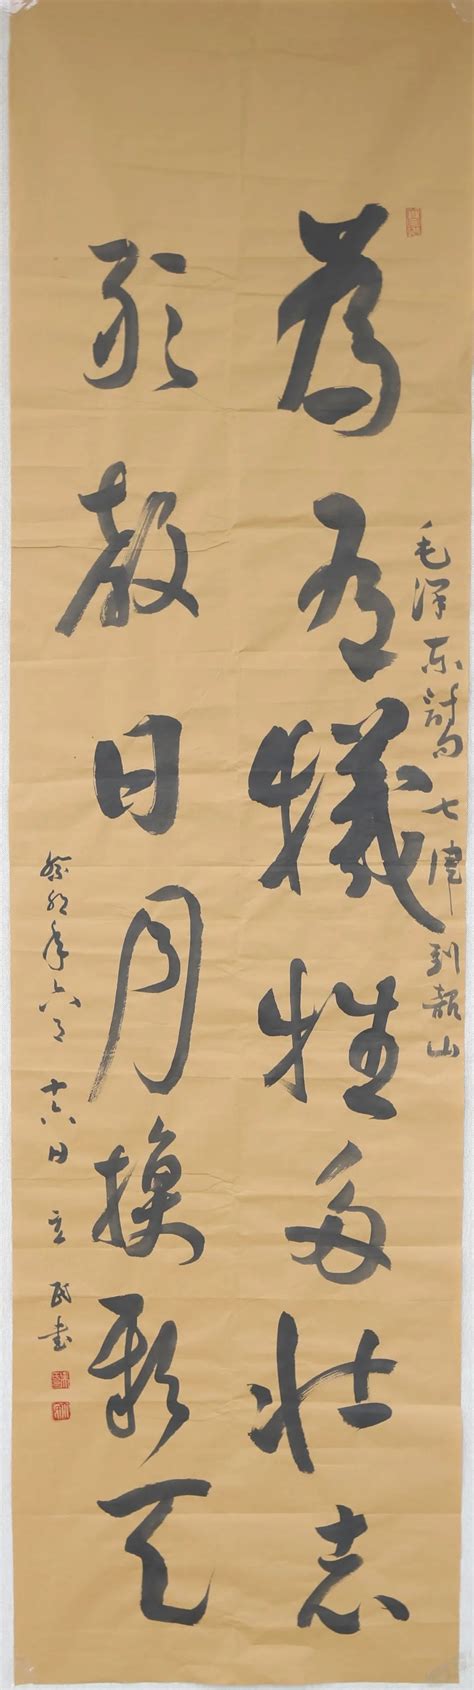 毛泽东詩句七律到韶山
為有犧牲多壮志
敢教日月換新天
癸卯年六月十六日立民書